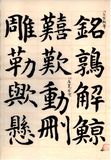 銘鶉解鯨
歎動刪
雕勒歟懸